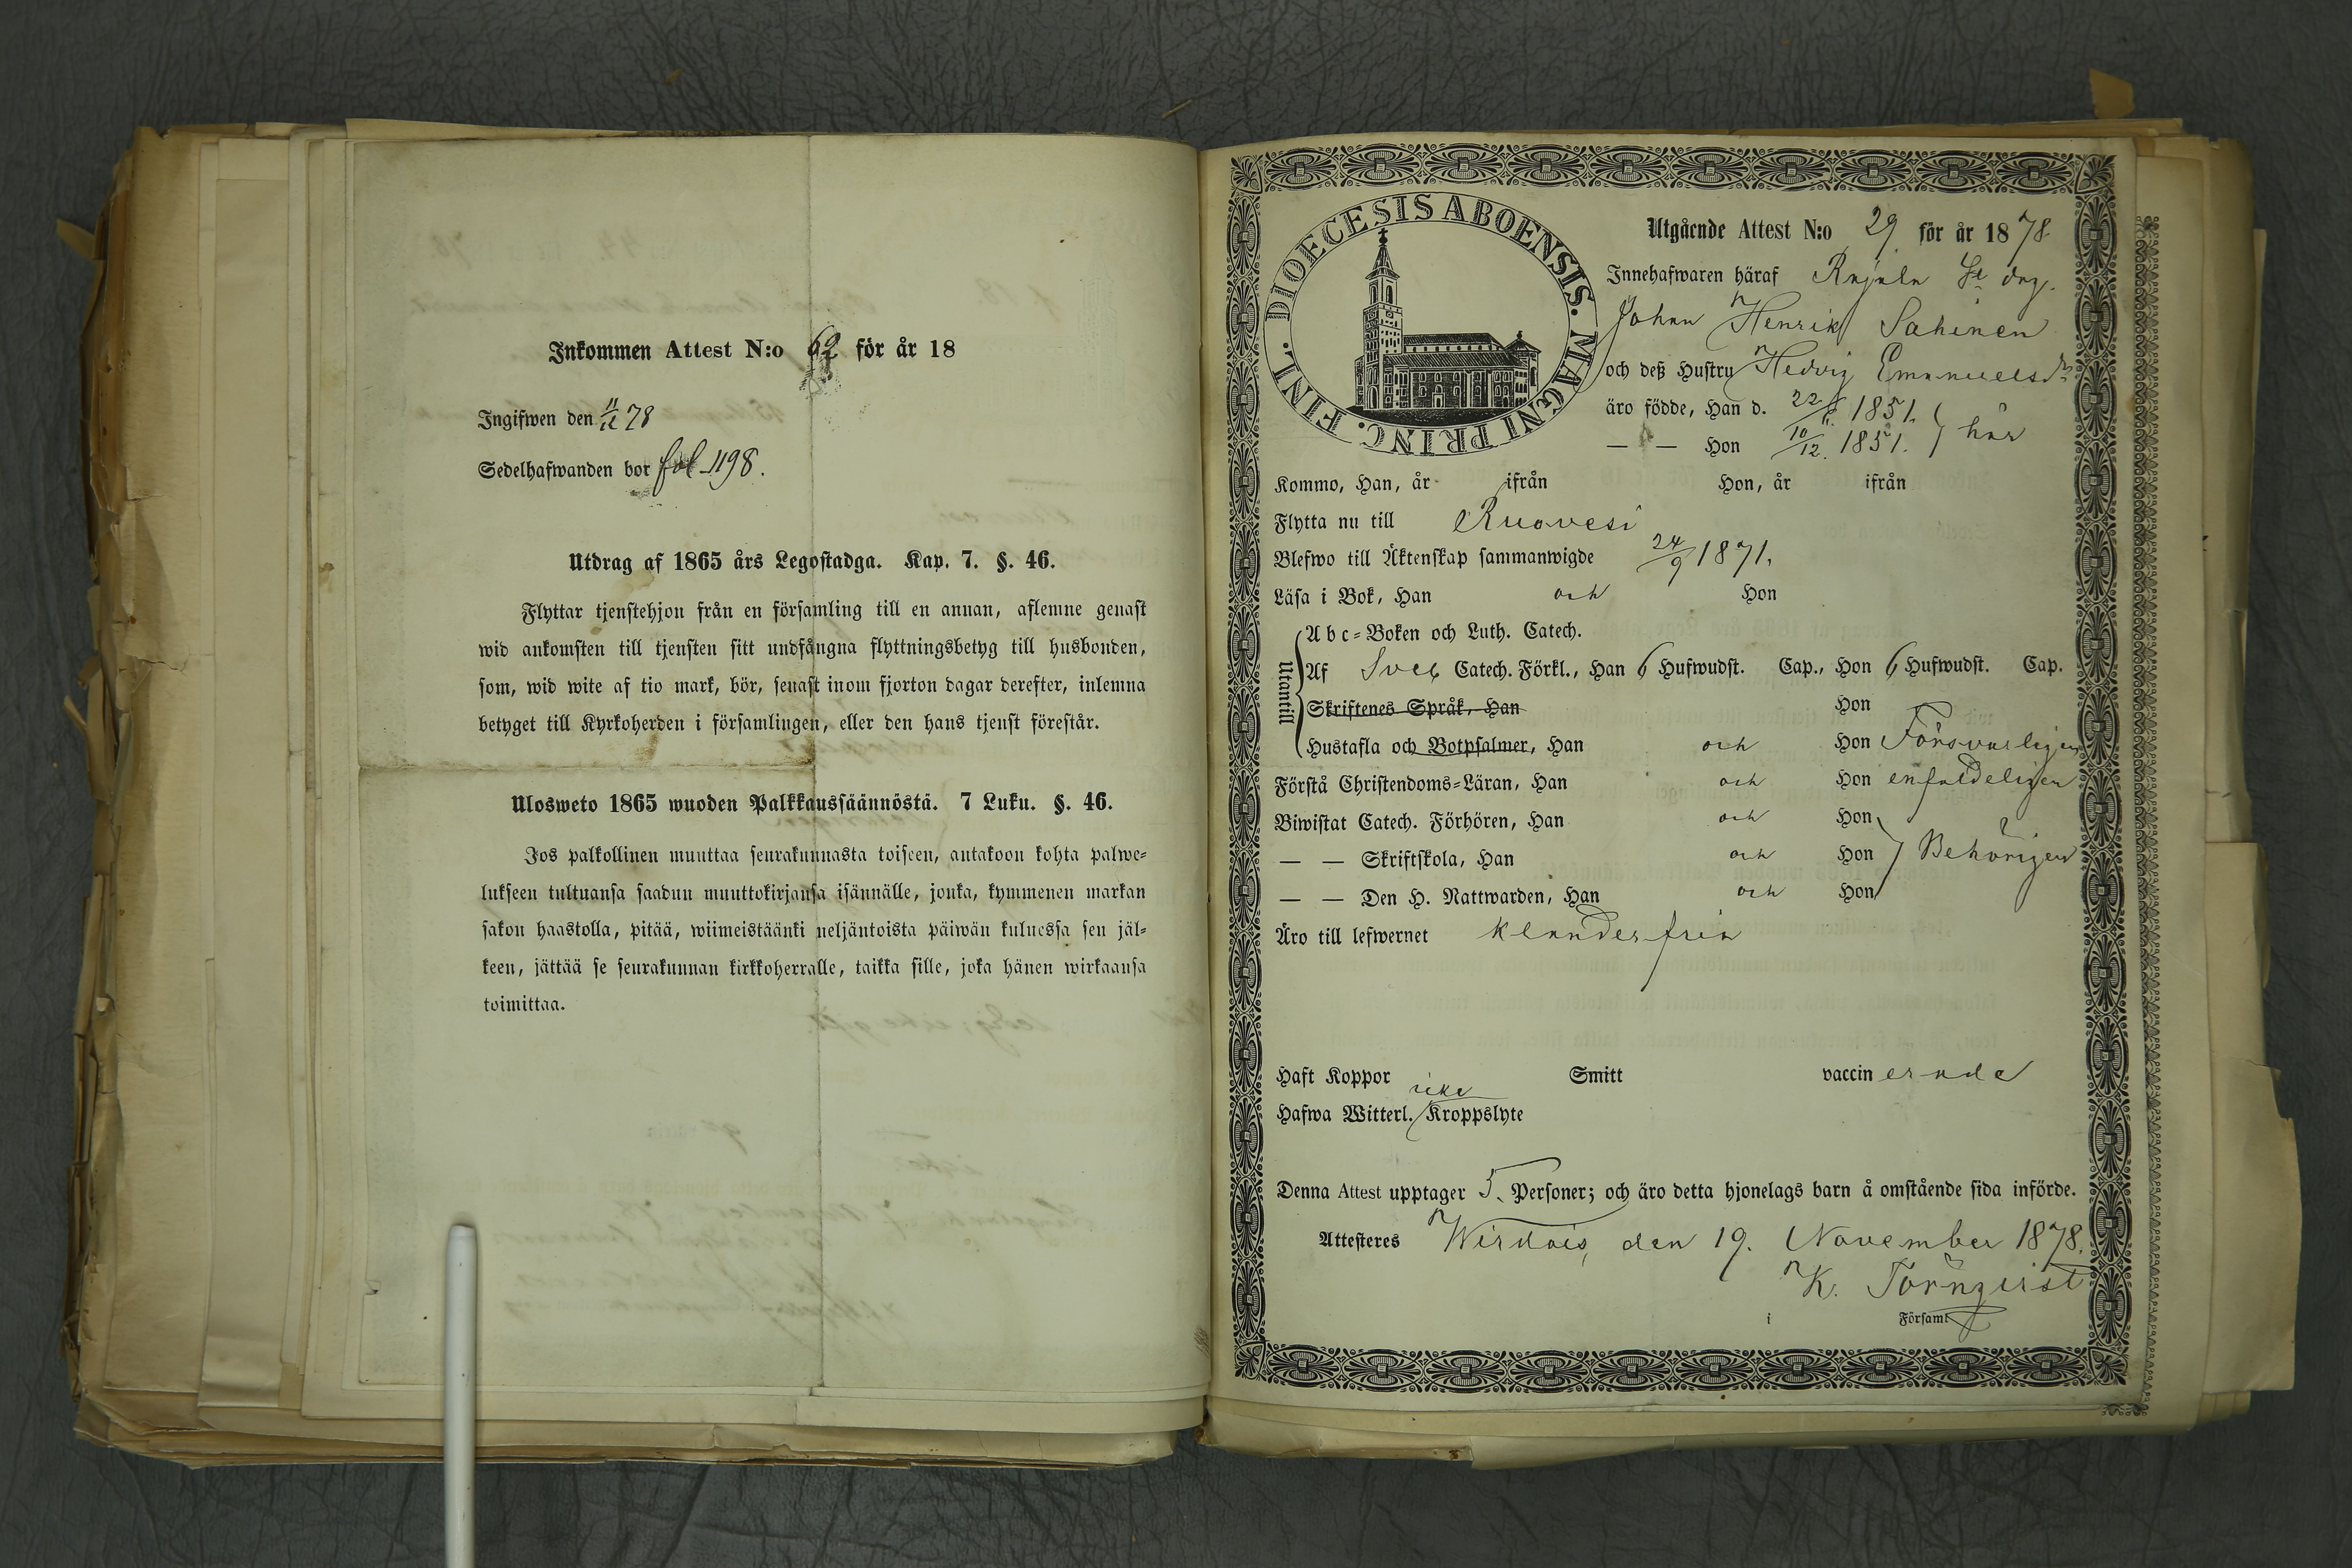 Inkommen Attest N:o 62 för år 18
Ingifwen den 11/12 78
Sedelhafwanden bor fol 1198.
Utdrag af 1865 års Legostadga. Kap. 7. §. 46.
Flyttar tjenstehjon från en församling till en annan, aflemne genast
wid ankomsten till tjensten sitt undfångna flyttningsbetyg till husbonden,
som, wid wite af tio mark, bör, senast inom fjorton dagar derefter, inlemna
betyget till Kyrkoherden i församlingen, eller den hans tjenst förestår.
Ulosweto 1865 wuoden Palkkaussäännöstä. 7 Luku. §. 46.
Jos palkollinen muuttaa seurakunnasta toiseen, antakoon kohta palwe=
lukseen tultuansa saadun muuttokirjansa isännälle, jonka, kymmenen markan
sakon haastolla, pitää, wiimeistäänki neljäntoista päiwän kuluessa sen jäl=
keen, jättää se seurakunnan kirkkoherralle, taikka sille, joka hänen wirkaansa
toimittaa.
DIOECESIS ABOENSIS. MAGNI PRINC. FINL.
Utgående Attest N:o 29 för år 1878
Innehafwaren häraf
Johan Henrik Sahinen
och deß Hustru Hedvig Emanuelsdr
äro födde, Han d. 22/ 1851.
— — Hon 10/12. 1851. här
Kommo, Han, år ifrån Hon, år ifrån
Flytta nu till Ruovesi
Blefwo till Äktenskap sammanwigde 24/9 1871.
Läsa i Bok, Han och Hon
Utantill
Abc=Boken och Luth. Catech.
Af Sveb Catech. Förkl., Han 6 Hufwudst. Cap., Hon 6 Hufwudst. Cap.
Skriftenes Språk, Han Hon
Hustafla och Botpsalmer, Han och Hon Försvarligen
Förstå Christendoms=Läran, Han och Hon enfaldeligen
Biwistat Catech. Förhören, Han och Hon
— — Skriftskola, Han och Hon Behörigen
— — Den H. Nattwarden, Han och Hon
Äro till lefwernet klanderfria
Haft Koppor Smitt vaccinerade
icke
Hafwa Witterl. Kroppslyte
Denna Attest upptager 5. Personer; och äro detta hjonelags barn å omstående sida införde.
Attesteres Wirdois, den 19. November 1878.
K. Törnqvist
i Församl